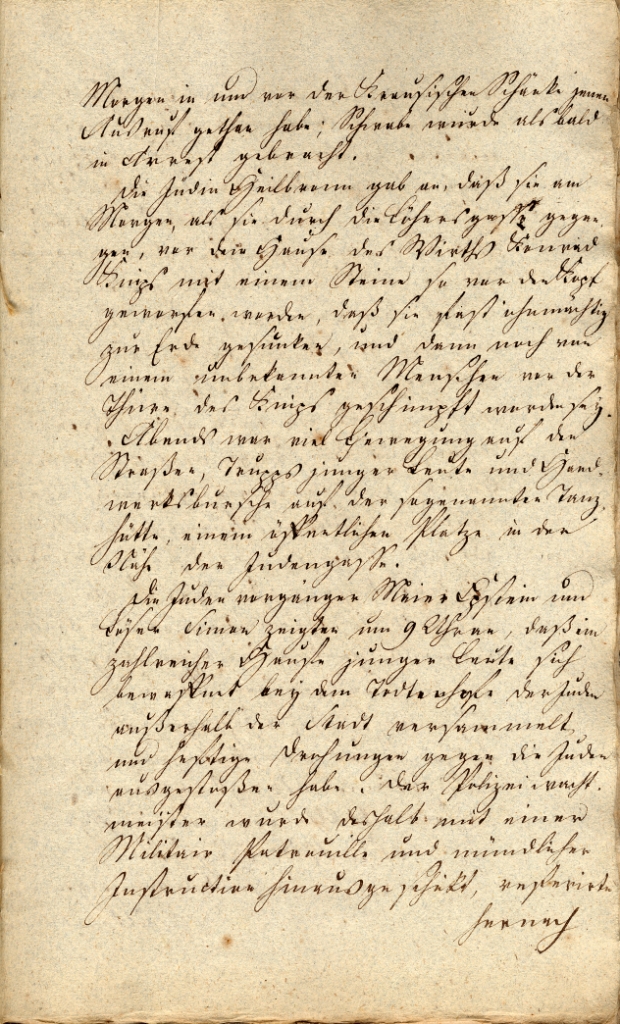 Morgen in und vor der Krausischen Schänke jenen
Ausruf gethan habe; Schwabe wurde alsbald
in Arrest gebracht.
Die Jüdin Heilbronn gab an, daß sie am
Morgen, als sie durch die Löhersgasse gegan-
gen, vor dem Hause des Wirths Konrad
Knips mit einem Steine so vor den Kopf
geworfen worden, daß sie fast ohnmächtig
zur Erde gesunken, und dann noch von
einem unbekannten Menschen vor der
Thüre des Knips geschimpft worden sey.
Abends war viel Bewegung auf den
Straßen, Trupps junger Leute und Hand-
werksbursche auf der sogenannten Tanz-
hütte, einem öffentlichen Platze in der
Nähe der Judengasse.
Die Judenvorgänger Meier Epstein und
Simon zeigten um 9 Uhr an, daß ein
zahlreicher Haufe junger Leute sich
bewaffnet bey dem Todtenhofe der Juden
außerhalb der Stadt versammelt,
und heftige Drohungen gegen die Juden
ausgestoßen habe. Der Polizeiwacht-
meister wurde deshalb mit einer
Militair Patrouille und mündlicher
Instruction hinausgeschikt, referirte
hernach